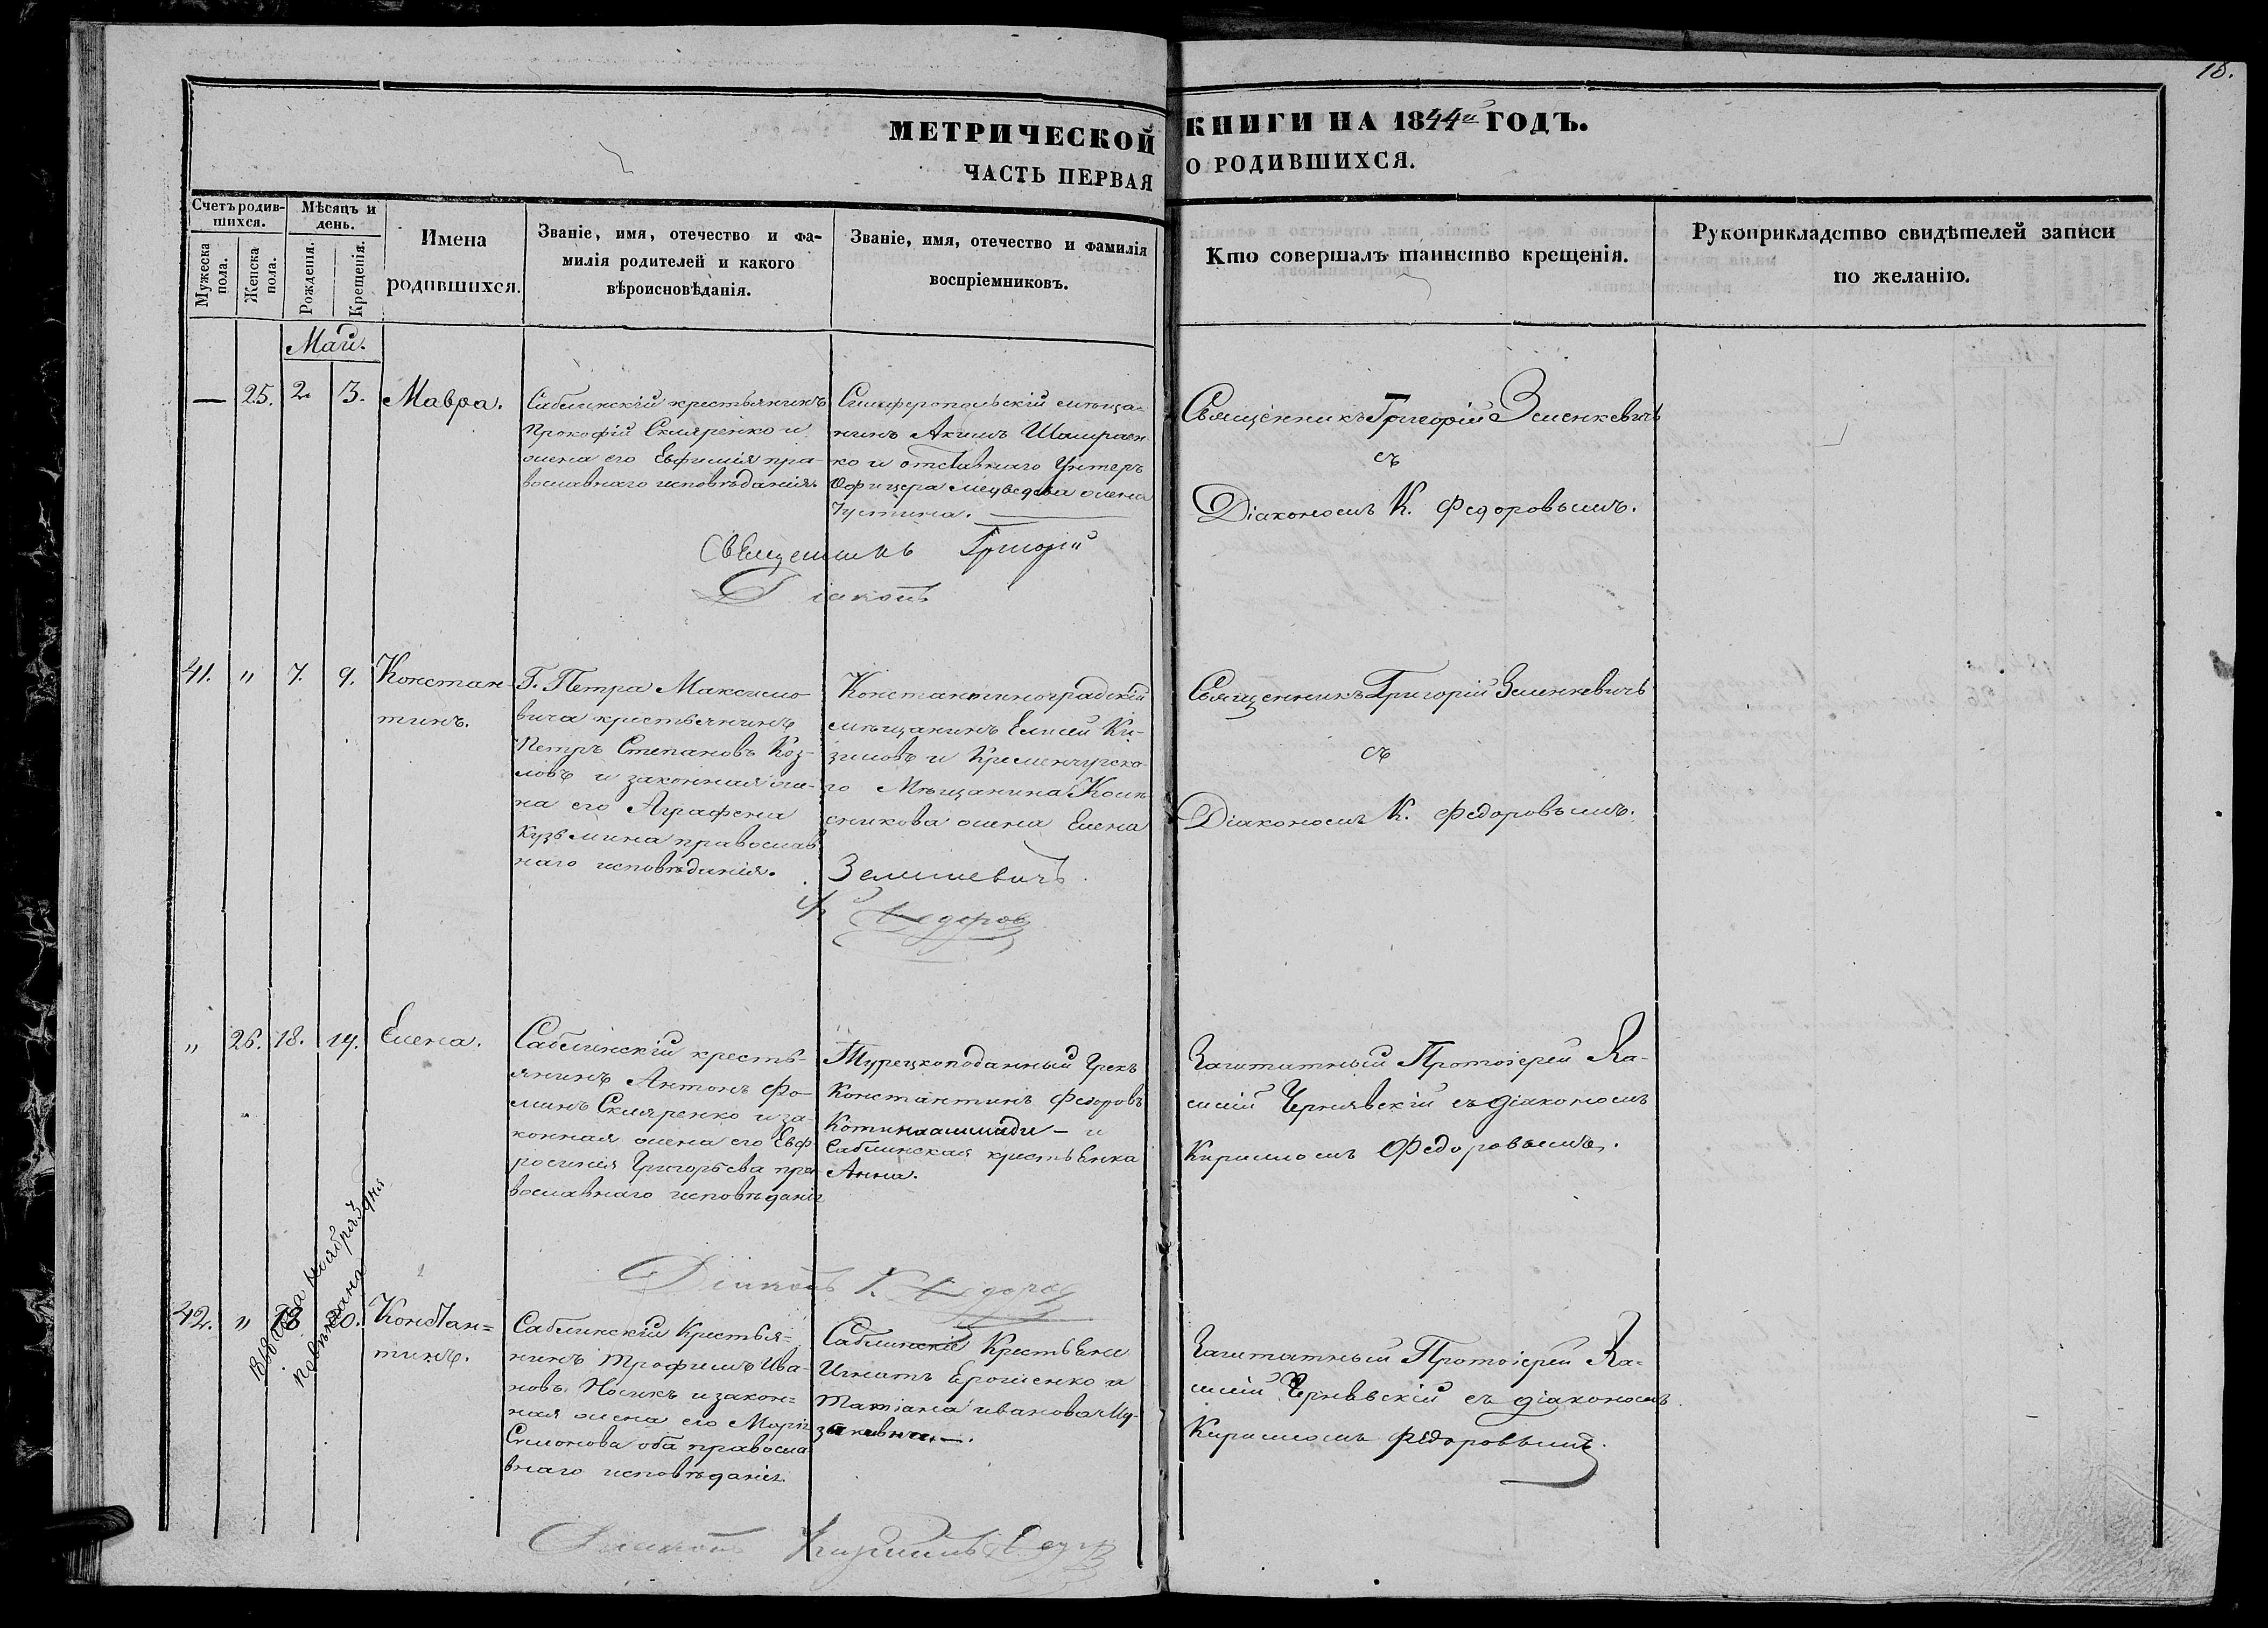 18.
МЕТРИЧЕСКОЙ КНИГИ НА 1844й ГОДЪ.
ЧАСТЬ ПЕРВАЯ О РОДИВШИХСЯ.
Счетъ родив-
шихся.
Мужеска
пола.
Женска
пола.
Мѣсяцъ и
день.
Рожденія.
Крещенія.
Имена
родившихся.
Званіе, имя, отечество и фа-
милія родителей и какого
вѣроисповѣданія.
Званіе, имя, отечество и фамилія
воспріемниковъ.
Кто совершалъ таинство крещенія.
Рукоприкладство свидѣтелей записи
по желанію.
Маій.
— 25. 2. 3. Мавра.
Саблинскій крестьянинъ
Прокофій Скляренко и
жена его Евфимія пра-
вославнаго исповѣданія.
Симферопольскій мѣща-
нинъ Акимъ
ко и отставнаго Унтеръ
Офицера Медведева жена
Іустина.
Священникъ Григорій Зеленкевичъ
съ
Діакономъ К. Федоровымъ.
Священникъ Григорій
Діаконъ
41. " 7. 9. Констан-
тинъ.
Г. Петра Максимо
вича крестьянинъ
Петръ Степановъ Коз-
ловъ и законная же-
на его Аграфена
Кузьмина православ
наго исповѣданія.
Константиноградскій
мѣщанинъ Елисей Ки-
зиловъ и Кременчугска-
го Мѣщанина
сникова жена Елена
Священникъ Григорій Зеленкевичъ
съ
Діакономъ К. Федоровымъ.
Зеленкевичъ
Федоров
" 26. 18. 19. Елена.
Саблинскій кресть-
янинъ Антонъ Фо-
минъ Скляренко и за-
конная жена его Евф
росинія Григорьева пра
вославнаго исповѣданія
Турецкоподанный Грекъ
Константинъ Федоровъ
и
Саблинская крестьянка
Анна.
Заштатный Протоіерей Ка-
Чернявскій съ діакономъ
Кирилломъ Федоровымъ.
Діаконъ К. Федоров
42. " 18 20. Констан=
тинъ.
Саблинскій Крестья=
нинъ Трофимъ Ива-
новъ Носикъ и закон=
ная жена его Марія
Симонова оба правосла
внаго исповѣданія.
Саблинскіе Крестьяне
Игнатъ Ерошенко и
Татіана Иванова
Заштатный Протоіерей Ка-
Чернявскій съ діакономъ
Кирилломъ Федоровымъ.
Діаконъ Кириллъ Федоров